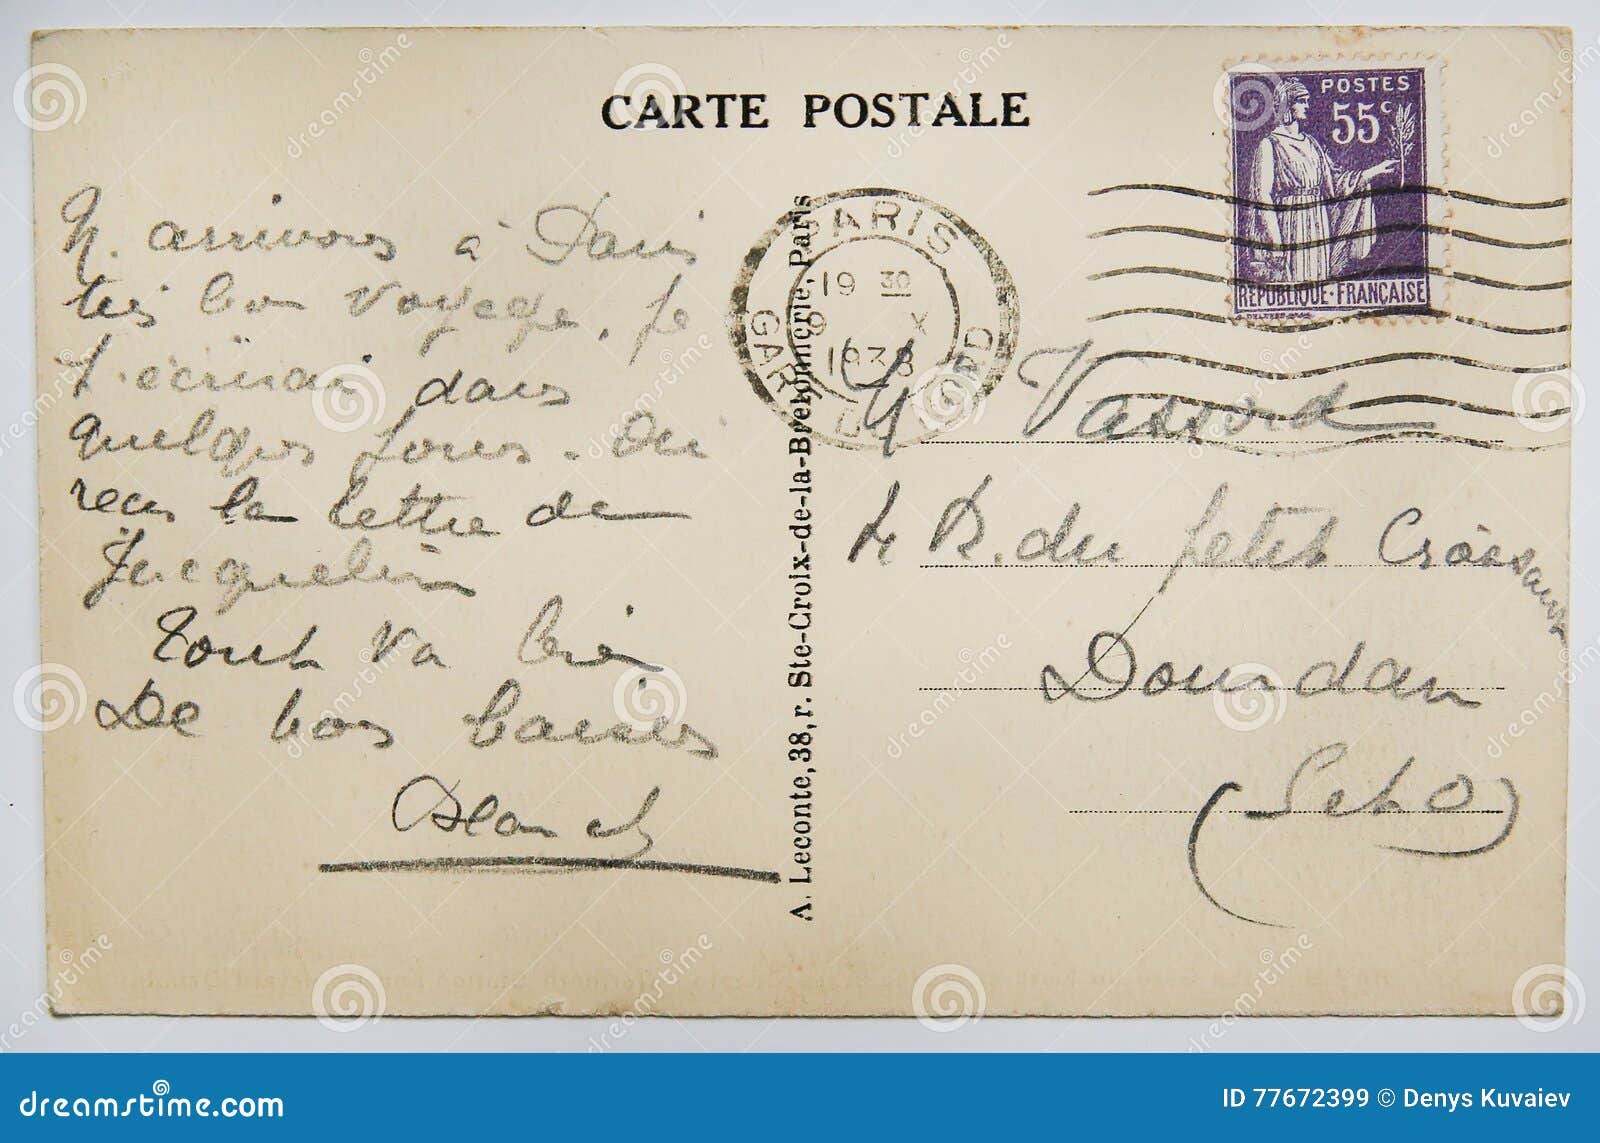 CARTE POSTALE
POSTES
55c
REPUBLIQUE·FRANÇAISE
PARIS
19 30
9 X
1938
GARE DU NORD
N. arrivons à Paris
très bon voyage. Je
t'écrirai dans
quelques jours. Oui
recu la lettre de
Jacqueline
Tout va bien
De bos baisers
Blanch
A. Leconte, 38, r. Ste-Croix-de-la-Bretonnerie, Paris
M Vassord
R. du petit Croissant
Dourdan
(S et O)
dreamstime
dreamstime.com
ID 77672399 © Denys Kuvaiev